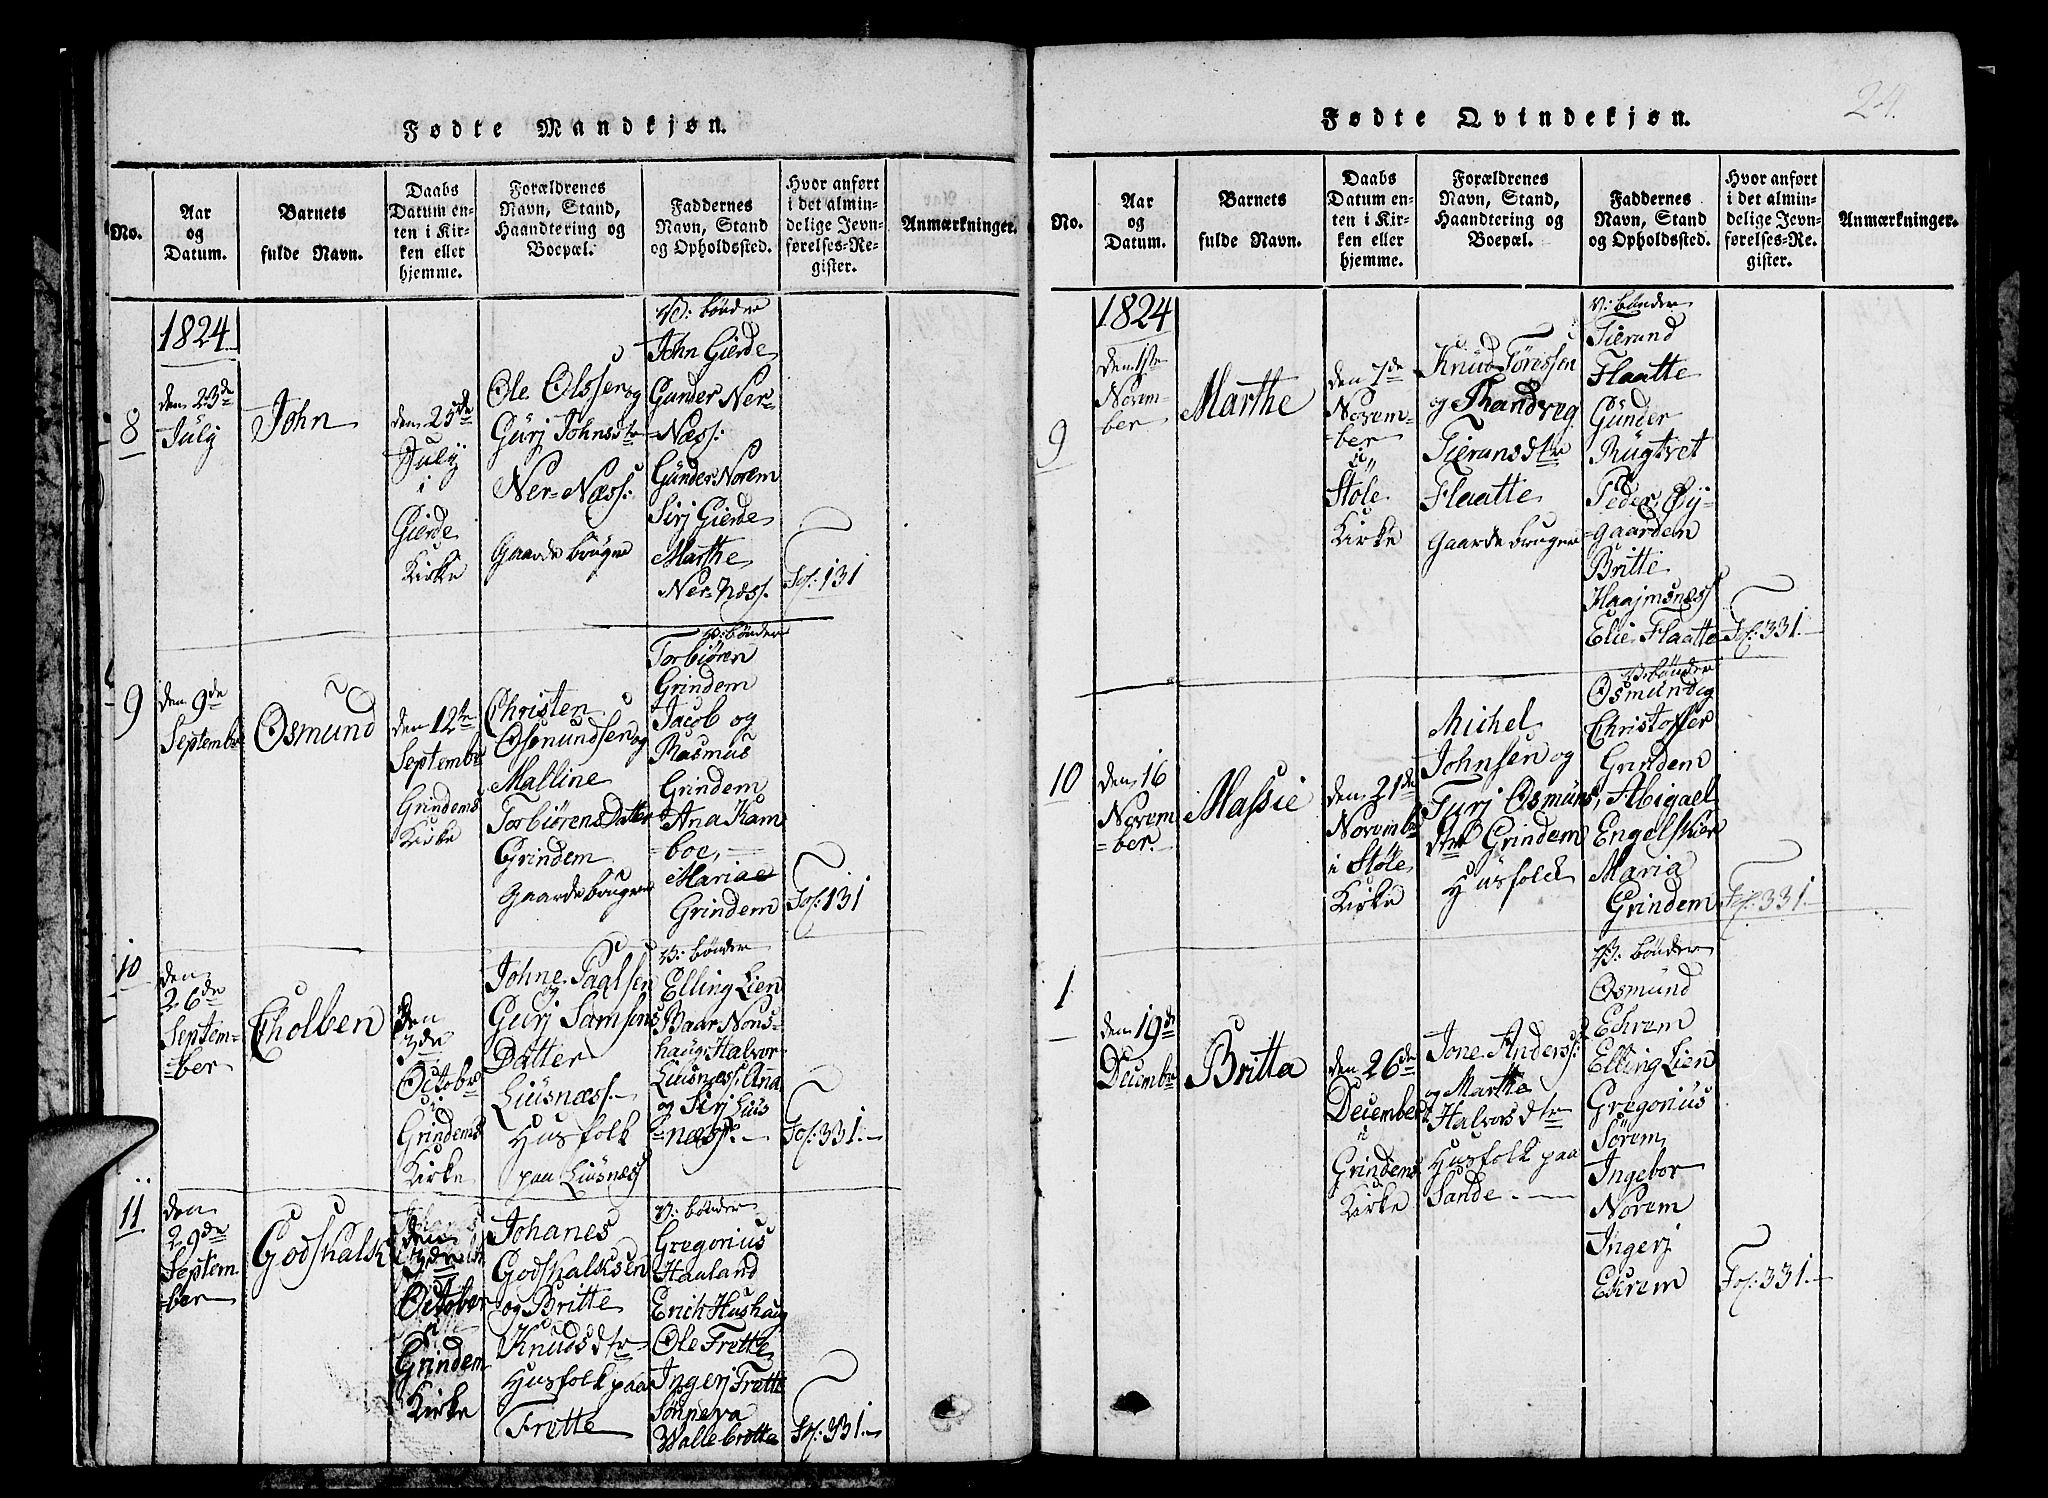 Fødte Mandkjøn.
No.
Aar
og
Datum.
Barnets
fulde Navn.
Daabs
Datum en-
ten i Kir-
ken eller
hjemme.
Forældrenes
Navn, Stand,
Haandtering og
Boepæl.
Faddernes
Navn, Stand
og Opholdssted.
Hvor anført
i det almin-
delige Jevn-
førelses-Re-
gister.
Anmærkninger.
1824
8
den 23de
July
John
den 25de
July
i
Gierde
Kirke
Ole Olssen og
Gurj Johnsdtr
Ner-Næss:
Gaardebruger
V: bønder
John Gierde
Gunder Ner-
Næss:
Gunder Norem
Sirj Gierde
Marthe
Ner-Næss.
Fol: 131
9
den 9de
Septembr
Osmund
den 12te
Septembr
Grindems
Kirke
Christen
Osmundsen og
Malline
Torbiørens Datter
Grindem
Gaardebruger
V: bønder
Torbiøren
Grindem
Jacob og
Rasmus
Grindem
Ana Kam
=boe,
Maria
Grindem
Fol: 131
10
den
26de
Septem-
=ber
Tholben
den
3de
Octobr
i
Grindems
Kirke
Johne Paalsen
og
Gurj Samsens
Datter
Liusnæss.
Husfolk
paa Liusnæss
V: bønder
Elling Lien
Baar Nons-
haug. Halvor
Liusnæss. Ana
og Sirj Lius
=næss.
Fol: 331.
11
den
29de
Septem
=ber
Godshalk
den
3de
October
i
Grindem
Kirke
Johanes
Godshalksen
og Britte
Knudsdtr
Husfolk paa
Frette
V: bønder
Gregorius
Haaland
Erich Hushaug
Ole Frette
Ingerj Frette
Sønneva
Wallebrotte
Fol: 331.
24.
Fødte Qvindekjøn.
No.
Aar
og
Datum.
Barnets
fulde Navn.
Daabs
Datum en-
ten i Kir-
ken eller
hjemme.
Forældrenes
Navn, Stand,
Haandtering og
Boepæl.
Faddernes
Navn, Stand
og Opholdssted.
Hvor anført
i det almin-
delige Jevn-
førelses-Re-
gister.
Anmærkninger.
1824
9
den 1ste
Novem-
ber
Marthe
den 7de
Novem-
=ber
i
Støle
Kirke
Knud Tørissen
og Randveg
Tieransdtr
Flaatte
Gaardebruger
V: bønder
Tierand
Flaatte
Gunder
Rugtvet
Peder Øy-
=gaarden
Britte
Haajmsnæss
Elie Flaatte
Fol: 331.
10
den 16
Novem
=ber.
Massie
den 21de
Novembr
i Støle
Kirke
Michel
Johnsen og
Turj Osmuns
dtr Grindem
Husfolck
V: bønder
Osmund og
Christoffer
Grindem
Abigael
Engelskier
Maria
Grindem
Fol: 331.
1
den 19de
Decembr
Britta
den 26de
December
i
Grindens
Kirke
Jone Anderss:
og Martha
Halvorsdtr
Husfolk paa
Sande.
V: bønder
Osmund
Echrem
Elling Lien
Gregorius
Sørem
Ingebor
Norem
Ingerj
Echrem
Fol: 331.